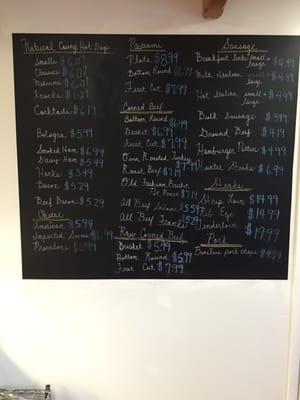 Natural Casing Hot Dogs
Smalls $6.09
Classics $6.09
Mediums $6.09
Knocks $6.09
Cocktails $6.19
Bologna $5.99
Smoked Ham $6.99
Daisy Ham $5.49
Hocks $3.49
Bacon $5.29
Beef Bacon $5.29
Cheese
American $5.99
Imported Swiss $6.99
Provolone $5.99
Pastrami
Plate $8.99
Bottom Round $6.99
First Cut $7.99
Corned Beef
Bottom Round $6.99
Brisket $6.99
First Cut $7.99
Oven Roasted Turkey $7.99
Roast Beef $7.19
Old Fashion Brisket
Pot Roast $7.19
All Beef Salami $5.59
All Beef Franks $5.29
Raw Corned Beef
Brisket $5.99
Bottom Round $5.99
First Cut $7.99
Sausage
Breakfast Links small + large $4.49
Mild Italian small + large $4.49
Hot Italian small + large $4.49
Bulk Sausage $3.99
Ground Beef $4.19
Hamburger Patties $4.99
Hunter Steaks $6.99
Steaks
Strip Loin $14.99
Rib Eye $14.99
Tenderloin $19.99
Pork
Boneless pork chops